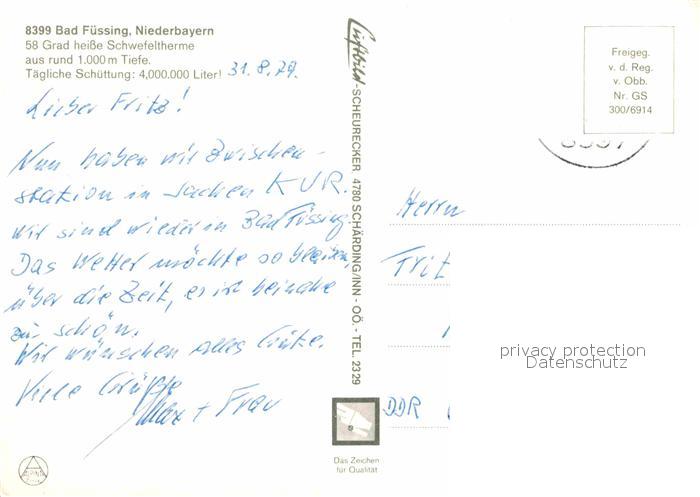 8399 Bad Füssing, Niederbayern
58 Grad heiße Schwefeltherme
aus rund 1.000 m Tiefe.
Tägliche Schüttung: 4,000.000 Liter!
31.8.79.
Lieber Fritz!
Nun haben wir Zwischen-
station in Sachen KUR.
Wir sind wieder in Bad Füssing.
Das Wetter möchte so bleiben,
über die Zeit, es ist beinahe
zu schön.
Wir wünschen alles Gute.
Viele Grüße
Max + Frau
Luftbild-SCHEURECKER 4780 SCHÄRDING/INN - OÖ. - TEL. 2329
Das Zeichen
für Qualität
Freigeg.
v. d. Reg.
v. Obb.
Nr. GS
300/6914
Herrn
Frit
DDR
privacy protection
Datenschutz